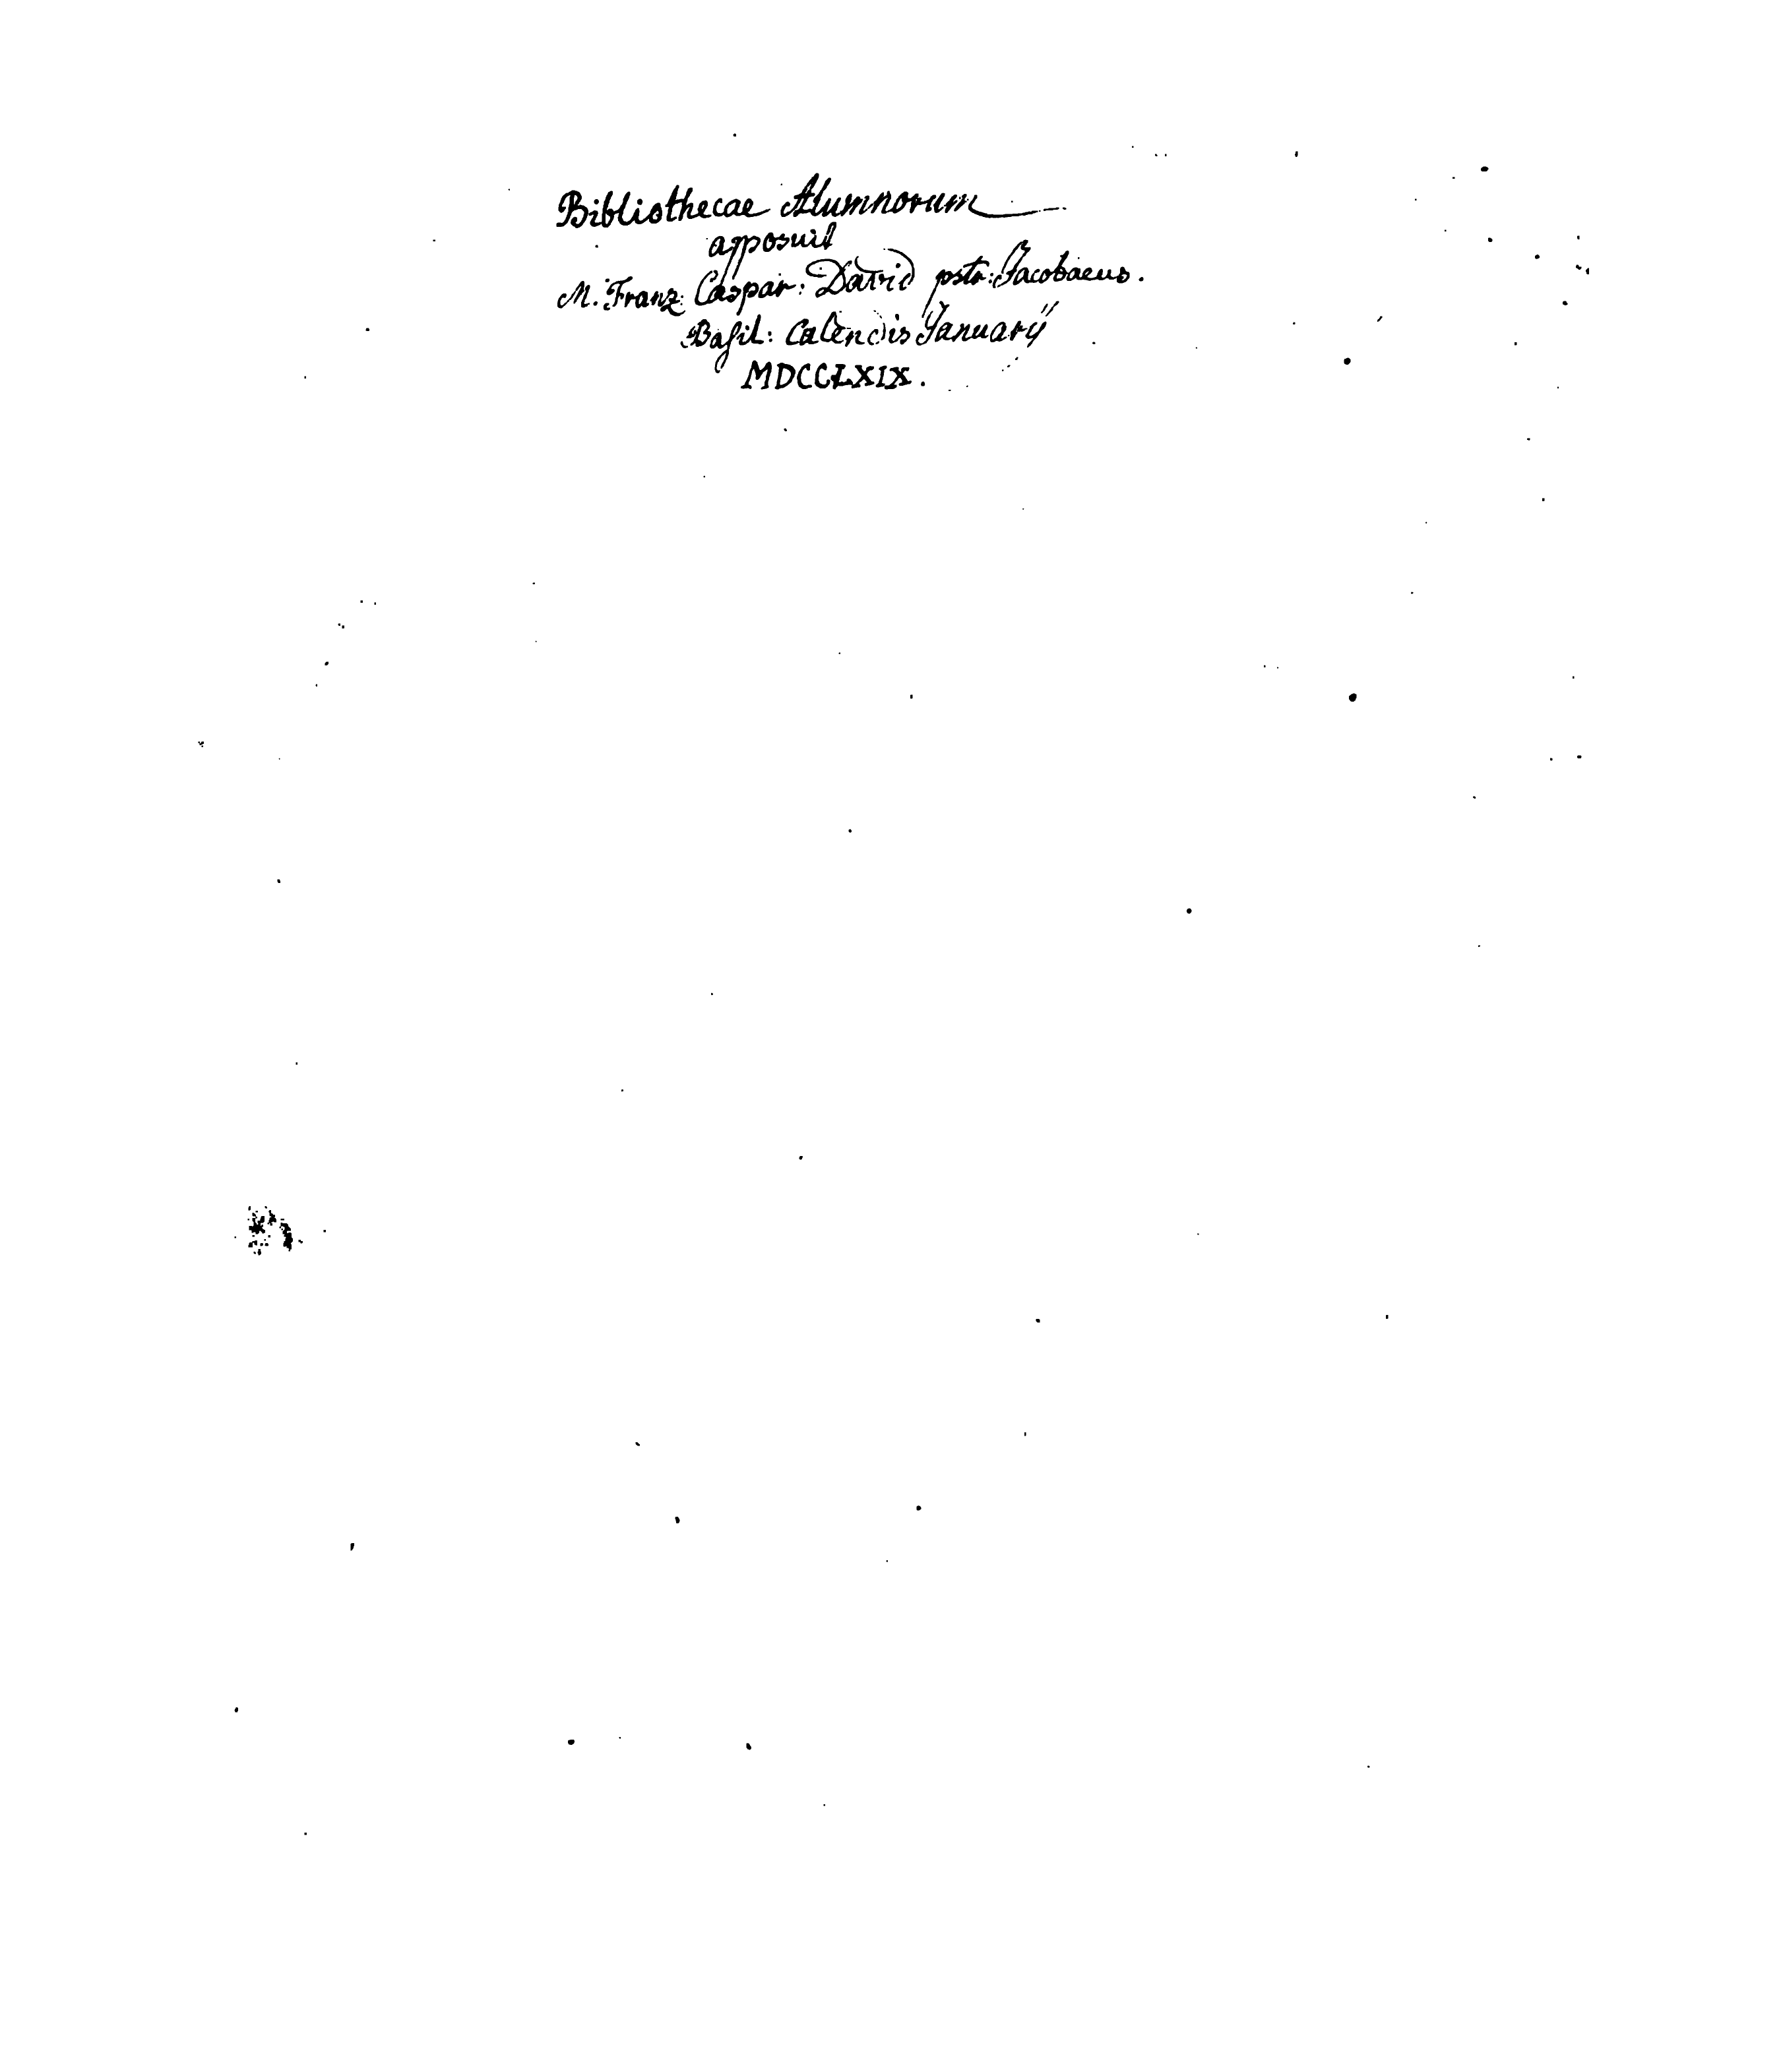 Bibliothecae Alumnorum
apposuit
M. Franz: Caspar: David pstr: Jacobaeus.
Basil: Calendis Januarÿ
MDCCLXIX.